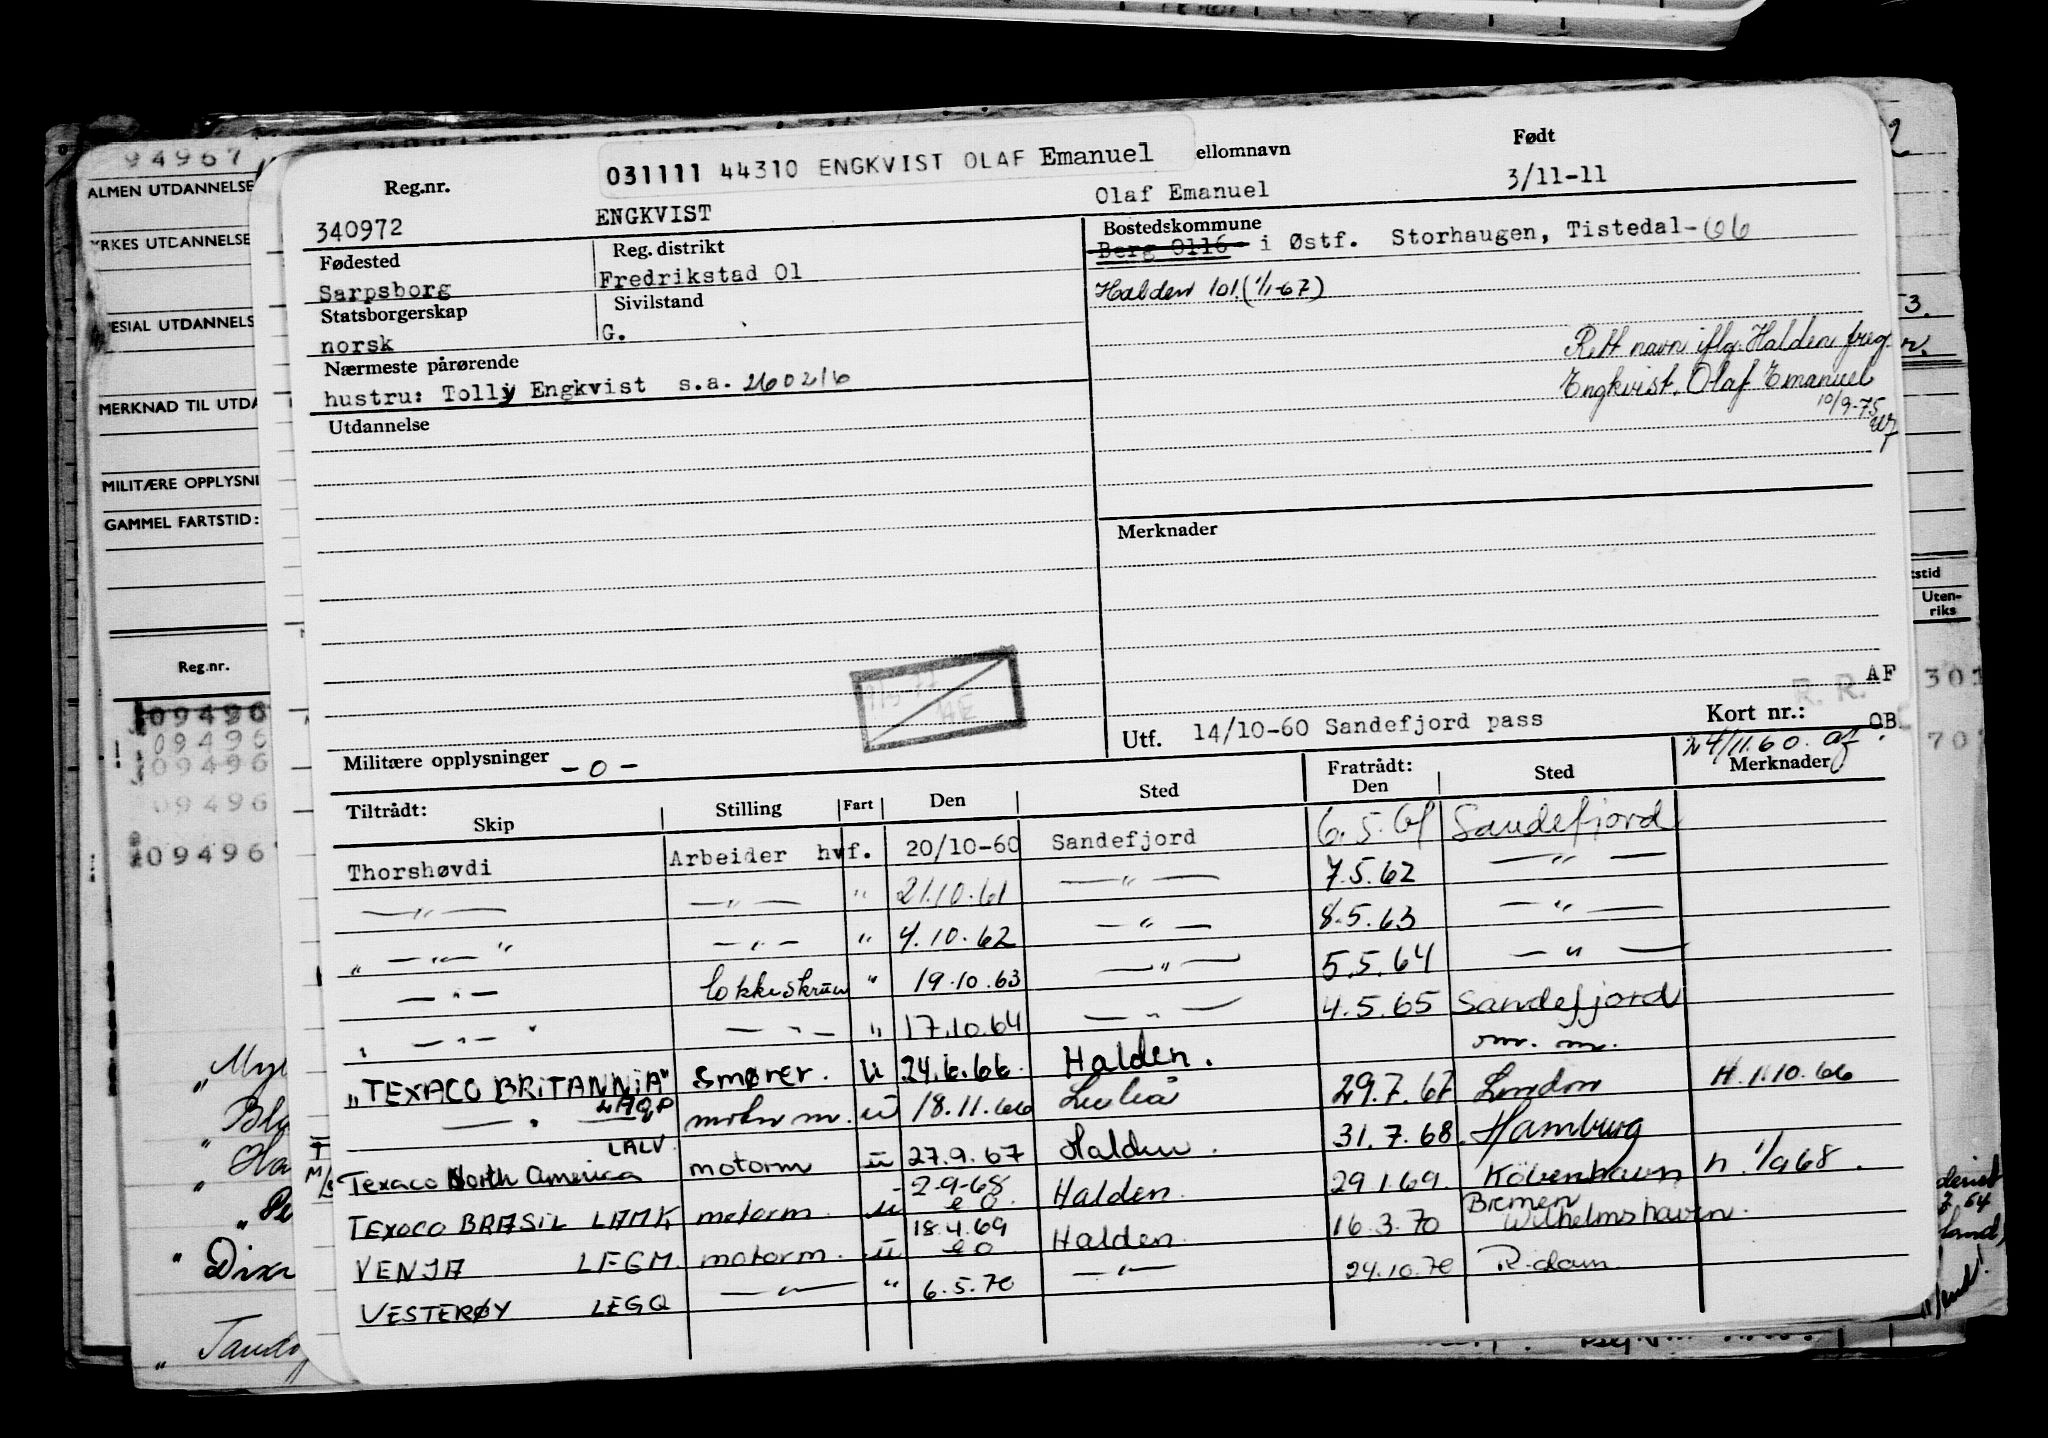 94967
ALMEN UTDANNELSE
YRKES UTDANNELSE
SPESIAL UTDANNELS
MERKNAD TIL UTDA
MILITÆRE OPPLYSNI
GAMMEL FARTSTID:
Reg.nr.
09496
09496
09496
09496
09496
Reg.nr. 031111 44310 ENGKVIST OLAF Emanuel ellomnavn Født
340972 ENGKVIST Olaf Emanuel 3/11-11
Fødested Reg. distrikt Bostedskommune
Sarpsborg Fredrikstad 01 Berg 0116 i Østf. Storhaugen, Tistedal-
Statsborgerskap Sivilstand Halden 101 (1/1-67)
norsk G.
Nærmeste pårørende Rett navn iflg. Halden freg.
hustru: Tolly Engkvist s.a. 260216 Engkvist, Olaf Emanuel
Utdannelse 10/9-75
Merknader
R. R. AF
Utf. 14/10-60 Sandefjord pass Kort nr.: OB
Militære opplysninger -o- 24/11.60. af
Tiltrådt: Skip Stilling Fart Den Sted Fratrådt: Den Sted Merknader
Thorshøvdi Arbeider hvf. 20/10-60 Sandefjord 6.5.61 Sandefjord
—"— —"— " 21.10.61 —"— 7.5.62 —"—
" —"— " —"— " 4.10.62 —"— 8.5.63 —"—
—"— " 19.10.63 —"— 5.5.64 —"—
" —"— " —"— " 17.10.64 —"— 4.5.65 Sandefjord
"TEXACO BRITANNIA" smører. u 24.6.66. Halden. m. m.
—"— LAQP u 18.11.66 Luleå 29.7.67 London H. 1.10.66
Texaco North America LALV motorm u 27.9.67 Halden. 31.7.68. Hamburg
TEXACO BRASIL LAMK motorm. u 2-9-68 Halden. 29.1.69. Köbenhavn h. 1/9 68.
VENJA LEGM. motorm. u 18.4.69 Halden. 16.3.70 Bremen Wilhelmshaven.
VESTERØY LEGQ —"— " 6.5.70 —"— 24.10.70 R.dam.
3.
stid
Uten-
riks
301
70